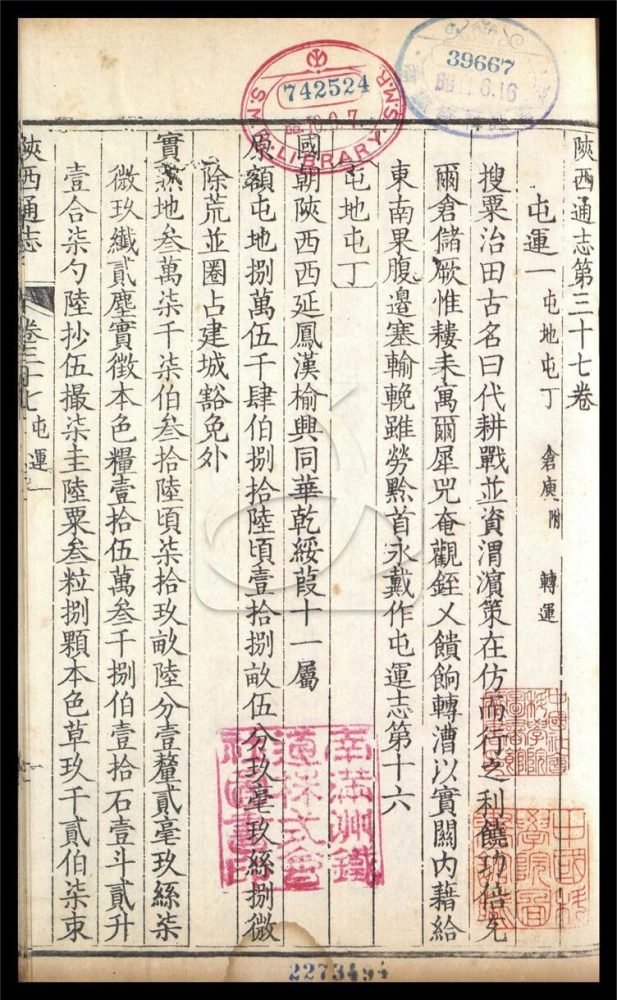 陝西通志第三十七卷
屯運一 屯地屯丁 倉庾附 轉運
搜粟治田古名曰代耕戰並資渭濵策在仿而行之利饒功倍允
爾倉儲厥惟耬耒寓爾犀兕奄觀銍乂饋餉轉漕以實關内藉給
東南果腹邊塞輸輓雖勞黔首永戴作屯運志第十六
屯地屯丁
國朝陝西西延鳳漢榆興同華乾綏葭十一屬
原額屯地捌萬伍千肆伯捌拾陸頃壹拾捌畝伍分玖毫玖絲捌微
除荒並圈占建城豁免外
實熟地叁萬柒千柒伯叁拾陸頃柒拾玖畝陸分壹釐貳毫玖絲柒
微玖纖貳塵實徵本色糧壹拾伍萬叁千捌伯壹拾石壹斗貳升
壹合柒勺陸抄伍撮柒圭陸粟叁粒捌顆本色草玖千貳伯柒束
陝西通志
卷三十七 屯運一
742524
S.M.R. LIBRARY S.M.R.
39667
南滿洲鐵道株式會社圖書印
2273494